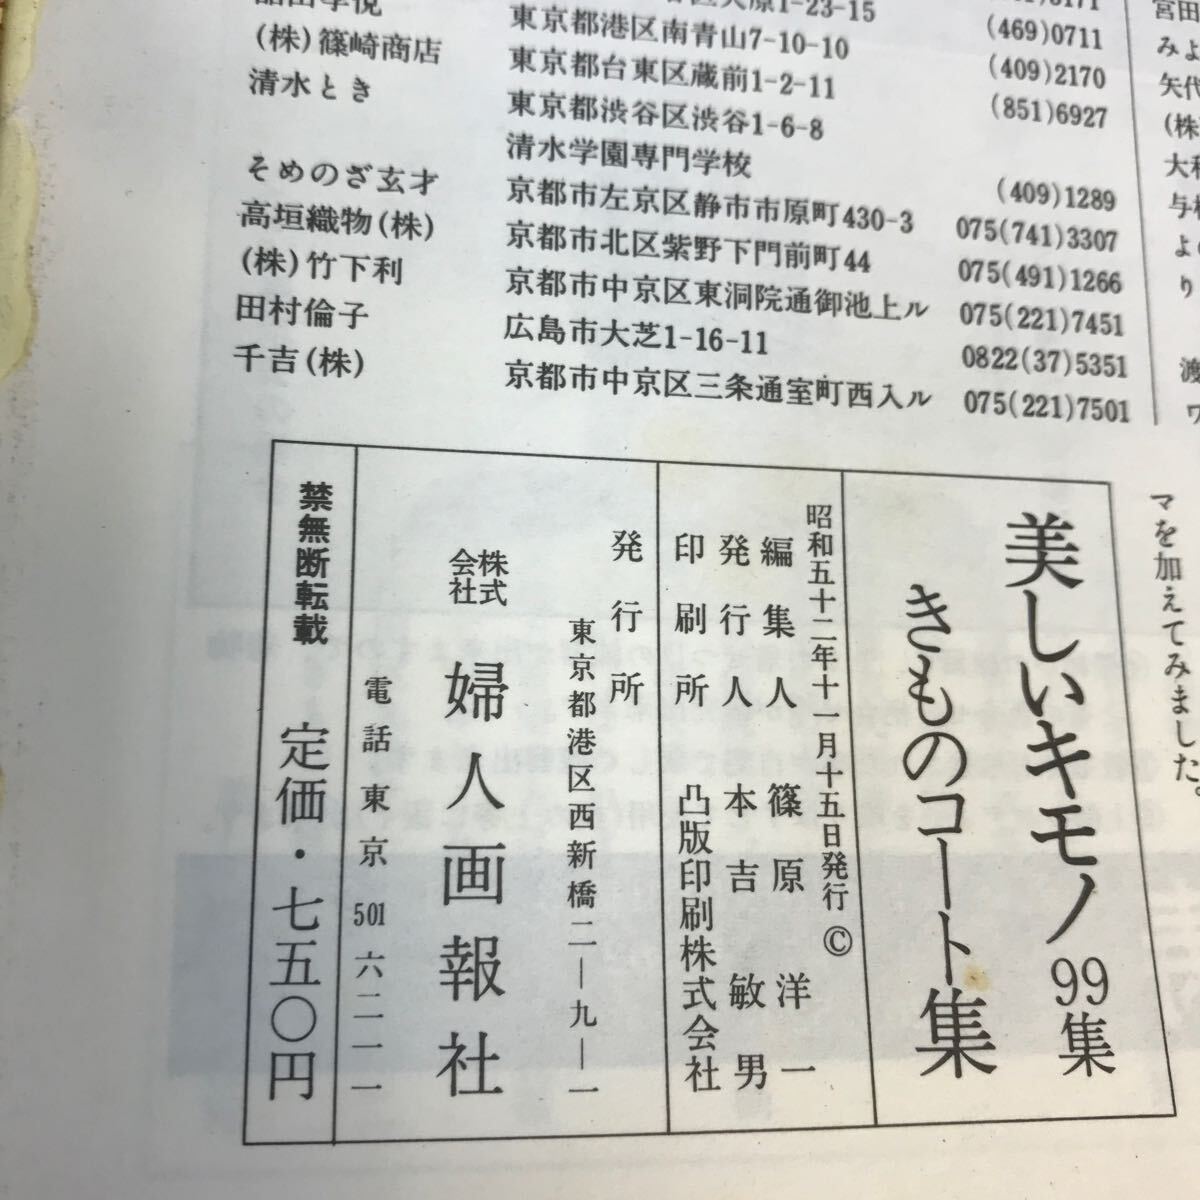 1-23-15
(株)篠崎商店
東京都港区南青山7-10-10
(469)0711
清水とき
東京都台東区蔵前1-2-11
(409)2170
東京都渋谷区渋谷1-6-8
(851)6927
清水学園専門学校
(409)1289
そめのざ玄才
京都市左京区静市市原町430-3
075(741)3307
高垣織物(株)
京都市北区紫野下門前町44
075(491)1266
(株)竹下利
京都市中京区東洞院通御池上ル
075(221)7451
田村倫子
広島市大芝1-16-11
0822(37)5351
千吉(株)
京都市中京区三条通室町西入ル
075(221)7501
宮田
みよ
矢代
(株)
大和
り
マを加えてみました。
美しいキモノ99集
きものコート集
昭和五十二年十一月十五日発行 ©
編集人 篠原洋一
発行人 本吉敏男
印刷所 凸版印刷株式会社
発行所
東京都港区西新橋二ー九ー一
株式会社 婦人画報社
電話東京501六二一一
禁無断転載 定価・七五〇円